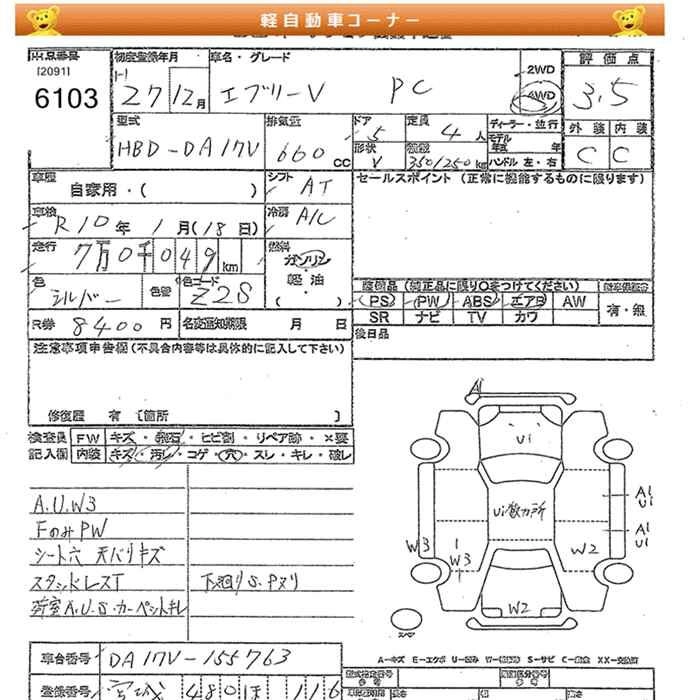 軽自動車コーナー
出品番号
[2091]
6103
初度登録年月
27 12月
車名・グレード
エブリーV PC
2WD
4WD
評価点
3.5
外装 内装
C C
型式
HBD-DA17V
排気量
660 CC
ドア
5
定員
4 人
形状
V
積載
350/250kg
ディーラー・並行
モデル
年式 年
ハンドル 左・右
車歴
自家用・( )
シフト
AT
セールスポイント (正常に機能するものに限ります)
車検
R10年 1月(18日)
冷房
A/C
走行
7万0千049km
燃料
ガソリン
軽・油
( )
色
シルバー
色替
色コード
Z2S
装備品 (純正品に限り○をつけてください)
PS PW ABS エアB AW
SR ナビ TV カワ
有・無
R券 8400円
名変通知期限 月 日
後日品
注意事項申告欄 (不具合内容等は具体的に記入して下さい)
修復歴 有 [箇所 ]
検査員 FW キズ・飛石・ヒビ割・リペア跡・×要
記入欄 内装 キズ・汚レ・コゲ・穴・スレ・キレ・破レ
A.U.W3
FのみPW
シート穴 天バリキズ
スタッドレスT
下廻りS.Pヌリ
荷室A.U.S.カーペットキレ
A1
U1
U1数カ所
A1
U1
A1
U1
W3
1
W3
W2
W2
スペア
A-キズ E-エクボ U-凹み W-(補修跡) S-サビ C-腐食 XX-交換済
車台番号 DA17V-155763
登録番号 宮城 480 ほ 116